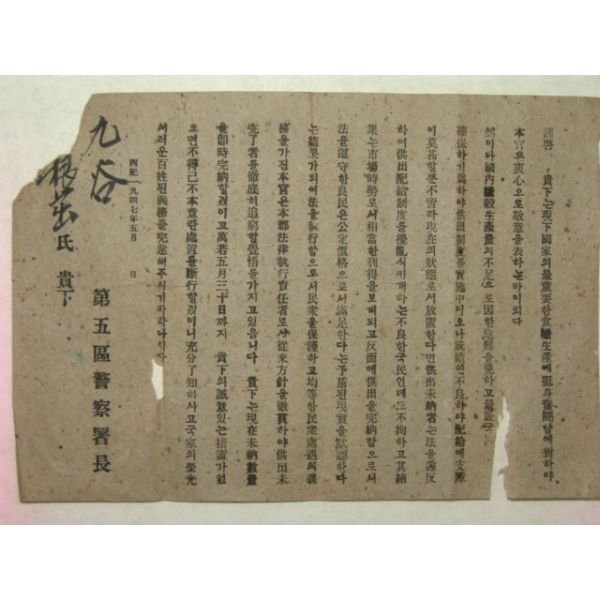 謹啓 貴下는現下國家의最重要한食糧生産에挺身奮鬪함에對하야
本官은衷心으로敬意를表하는바이외다
然이나國內糧穀生産量의不足으로因한危難을免하고
確保하기爲하야供出制度를實施中이오나成績이不良하야配給에支障
이莫甚할뿐不啻라現在의狀態로서放置한다면供出未納者는法을違反
하여供出配給制度를擾亂식히게하는不良한국民인데도不拘하고其結
果는市場時勢로서相當한利得을보게되고反面에供出을完納함으로서
法을遵守한良民은公定價格으로서滿足한다는矛盾된現實을默認하다
는結果가되여法을執行함으로서民衆을保護하고均等한民衆處遇의義
務을가진本官은本郡法律執行責任者로서從來方針을徹貫하야供出未
完了者를徹底히追窮할覺悟를가지고있음니다 貴下는現在未納數量
을卽時完納할것이고萬若五月三十日까지 貴下의誠意있는措置가없
으면不得已不本意한處置를斷行할것이니充分了知하사고國家의榮光
서러운百姓된義務를完遂해주시기바라나이다
西紀一九四七年五月 日
第五區警察署長
九谷
氏 貴下